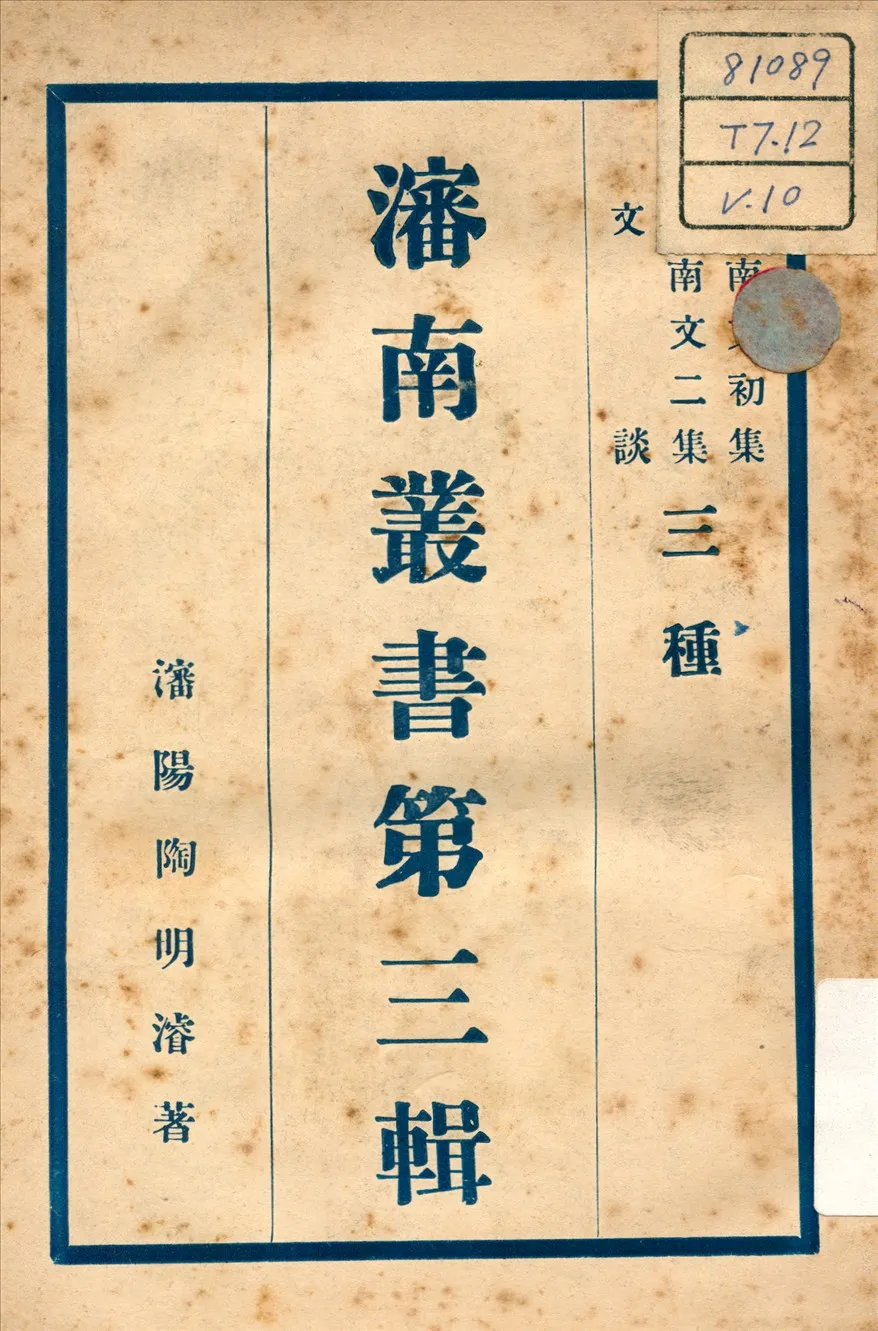 81089
T7.12
V.10
南 初集
南文二集
文談
三種
瀋南叢書第三輯
瀋陽陶明濬著